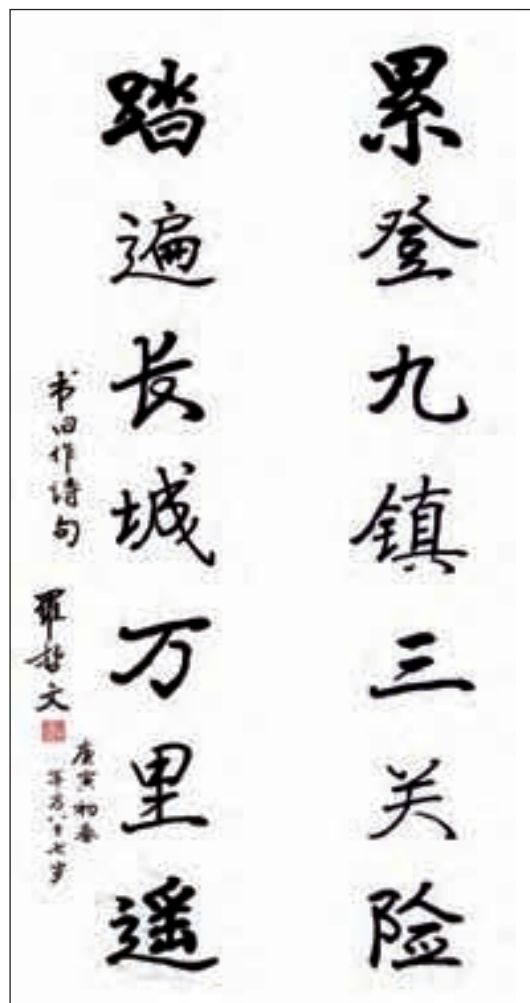 累登九镇三关险
踏遍长城万里遥
书旧作诗句
罗哲文
庚寅初春
年方八十七岁